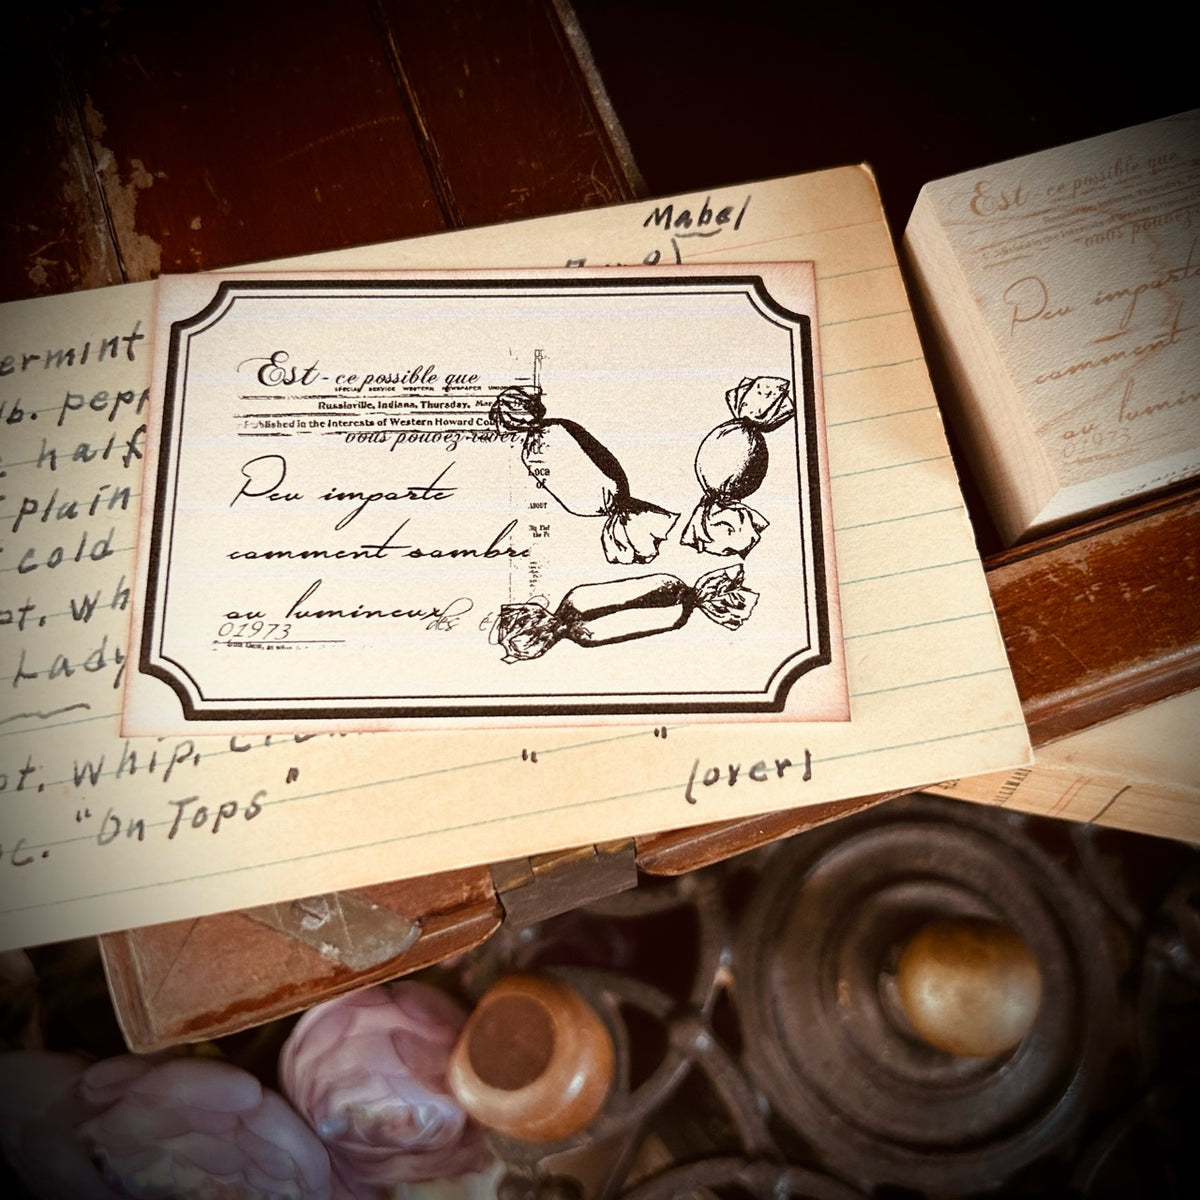 Mabel
ermint
lb. pepp
half
plain
cold
pt. wh
Lady
pt. whip.
" "
"
(over)
"On Tops
Est - ce possible que
SPECIAL SERVICE WESTERN NEWSPAPER UNION
Russiaville, Indiana, Thursday, Mar
Published in the Interests of Western Howard Cou
vous pouvez rêver
Loca
of
ABOUT
Peu importe
comment sombre
ou lumineux
des
01973
Est - ce possible que
Published in the Interests of Western Howard
vous pouvez
Peu importe
comment
ou lumin
01973